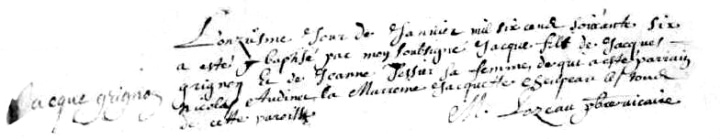 L'onzusme Jour de Janvier mil six cent soixante six
a esté baptisé par moy soubsigné Jacque fils de Jacques
Jacque grignon
grignon Et de Jeanne Tessier sa femme, de qui a esté parrain
Nicolas Audinet la Marreine Jacquette
de cette paroisse
M. Lozeau pbre vicaire